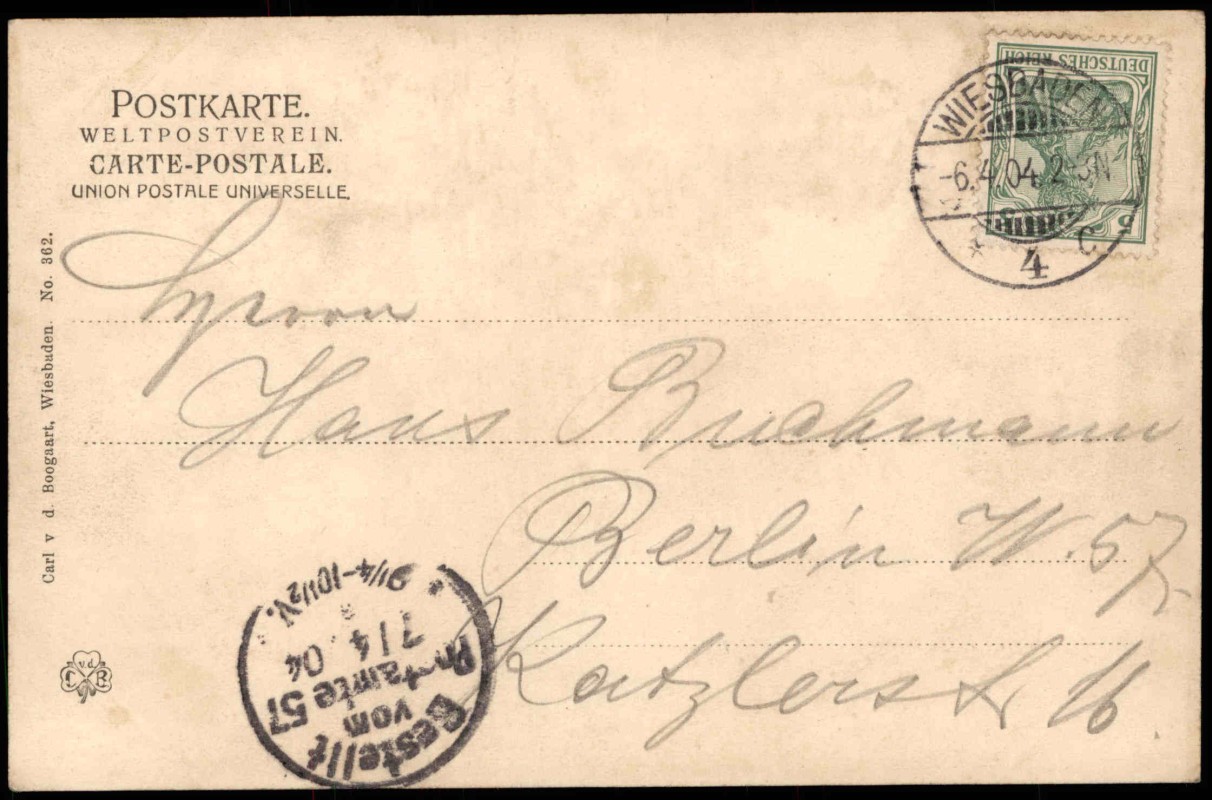 POSTKARTE.
WELTPOSTVEREIN.
CARTE-POSTALE.
UNION POSTALE UNIVERSELLE.
DEUTSCHES REICH
5
WIESBADEN
-6.4.04. 2-3N
* 4 C
Herrn
Hans Buchmann
Berlin W. 57.
Katzlerst 16
Carl v d. Boogaart, Wiesbaden. No. 362.
v.d.
C B
Bestellt
vom
Postamte 57
7/4 04
9 1/4-10 1/2 V.